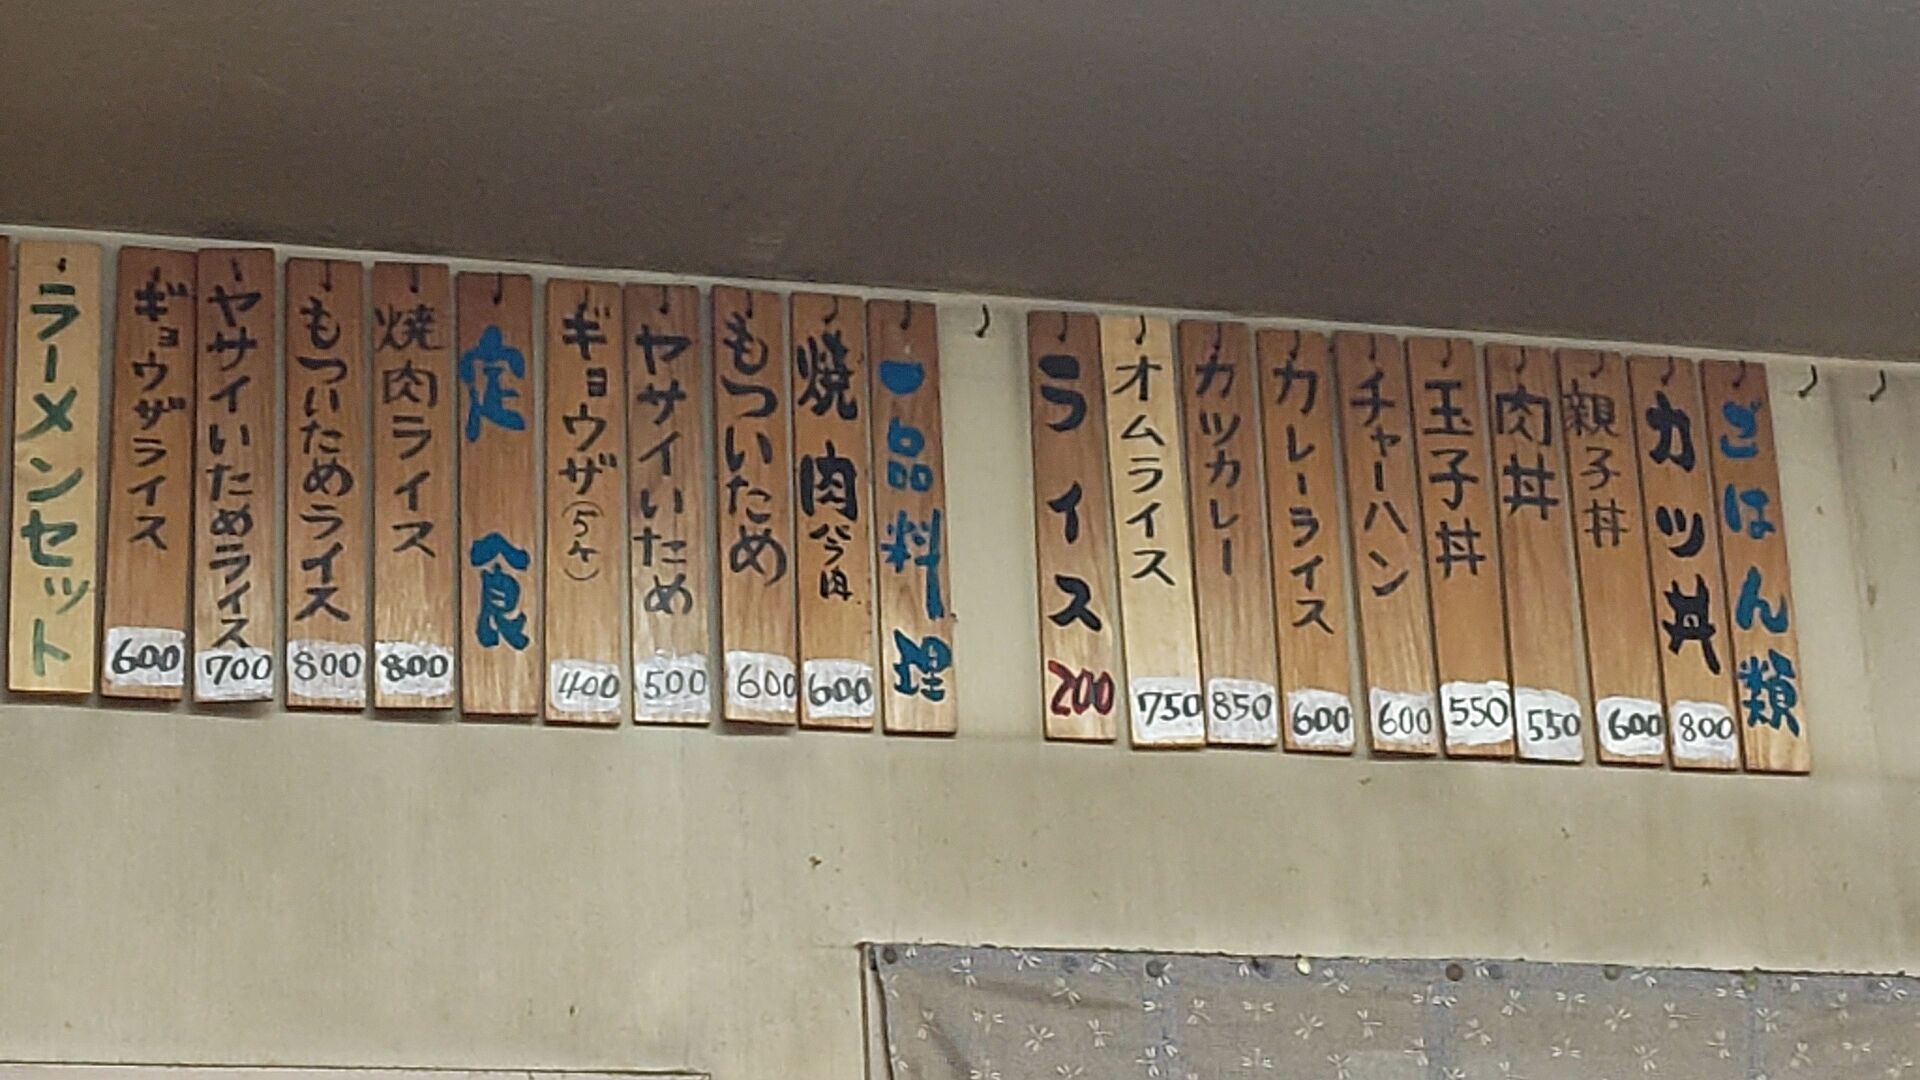 ごはん類
カツ丼 800
親子丼 600
肉丼 550
玉子丼 550
チャーハン 600
カレーライス 600
カツカレー 850
オムライス 750
ライス 200
一品料理
焼肉 バラ肉 600
もついため 600
ヤサイいため 500
ギョウザ(5ヶ) 400
定食
焼肉ライス 800
もついためライス 800
ヤサイいためライス 700
ギョウザライス 600
ラーメンセット